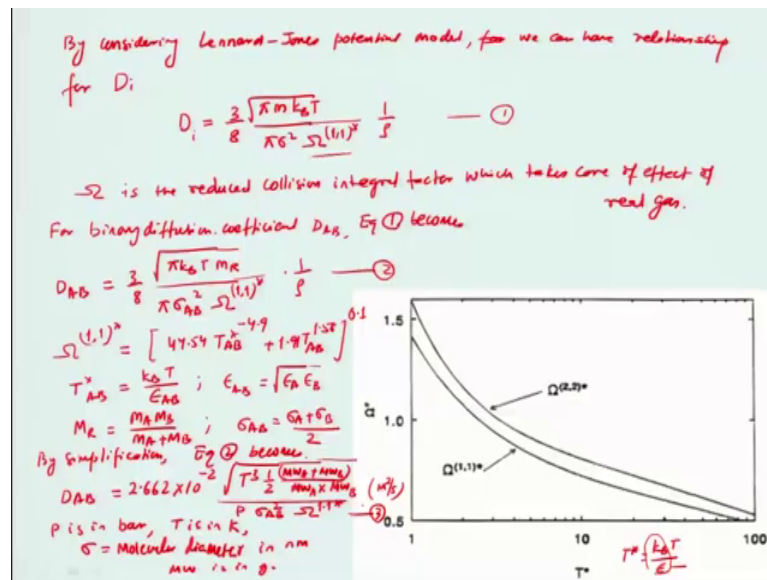 By considering Lennard-Jones potential model, for we can have relationship
for Di
D_i = 3/8 √(π m k_B T) / (π σ² Ω^(1,1)*) 1/ρ —— ①
Ω is the reduced collision integral factor which takes care of effect of
real gas.
For binary diffusion coefficient D_AB, Eq ① becomes
D_AB = 3/8 √(π k_B T m_R) / (π σ_AB² Ω^(1,1)*) · 1/ρ —— ②
Ω^(1,1)* = [44.54 T*_AB^-4.9 + 1.91 T*_AB^-1.58]^0.1
T*_AB = k_B T / ε_AB ; ε_AB = √(ε_A ε_B)
M_R = m_A m_B / (m_A + m_B) ; σ_AB = (σ_A + σ_B) / 2
By simplification, Eq ② become.
D_AB = 2.662 × 10^-2 √(T³ 1/2 (MW_A + MW_B) / (MW_A × MW_B)) / (P σ_AB² Ω^1.1*) (m²/s) —③
P is in bar, T is in K,
σ = Molecular diameter in nm
MW is in g.
1.5
1.0
0.5
Ω*
Ω(2,2)*
Ω(1,1)*
1
10
100
T*
T* = k_B T / ε